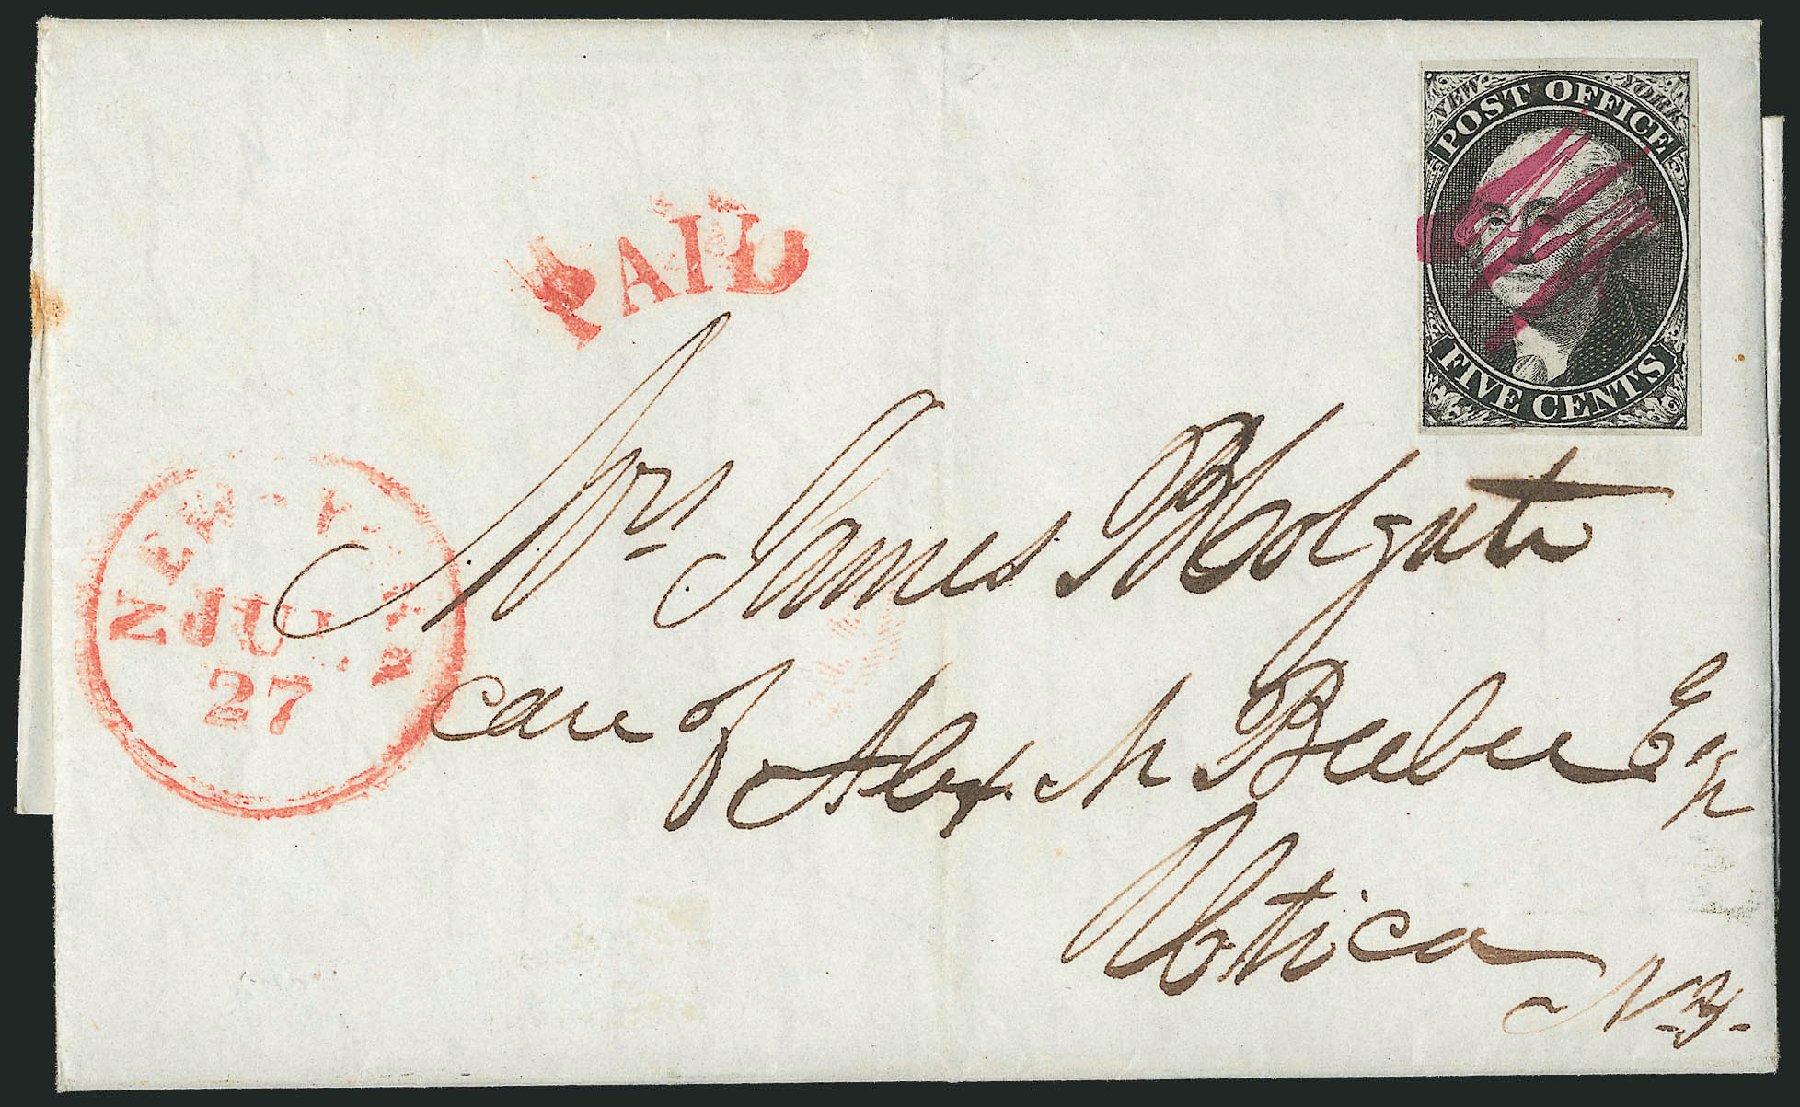 NEW YORK
POST OFFICE
FIVE CENTS
PAID
NEW-YORK
JUL
27
Mrs James Holgate
care of Alex. M Beebee Esqr
Utica
N.Y.